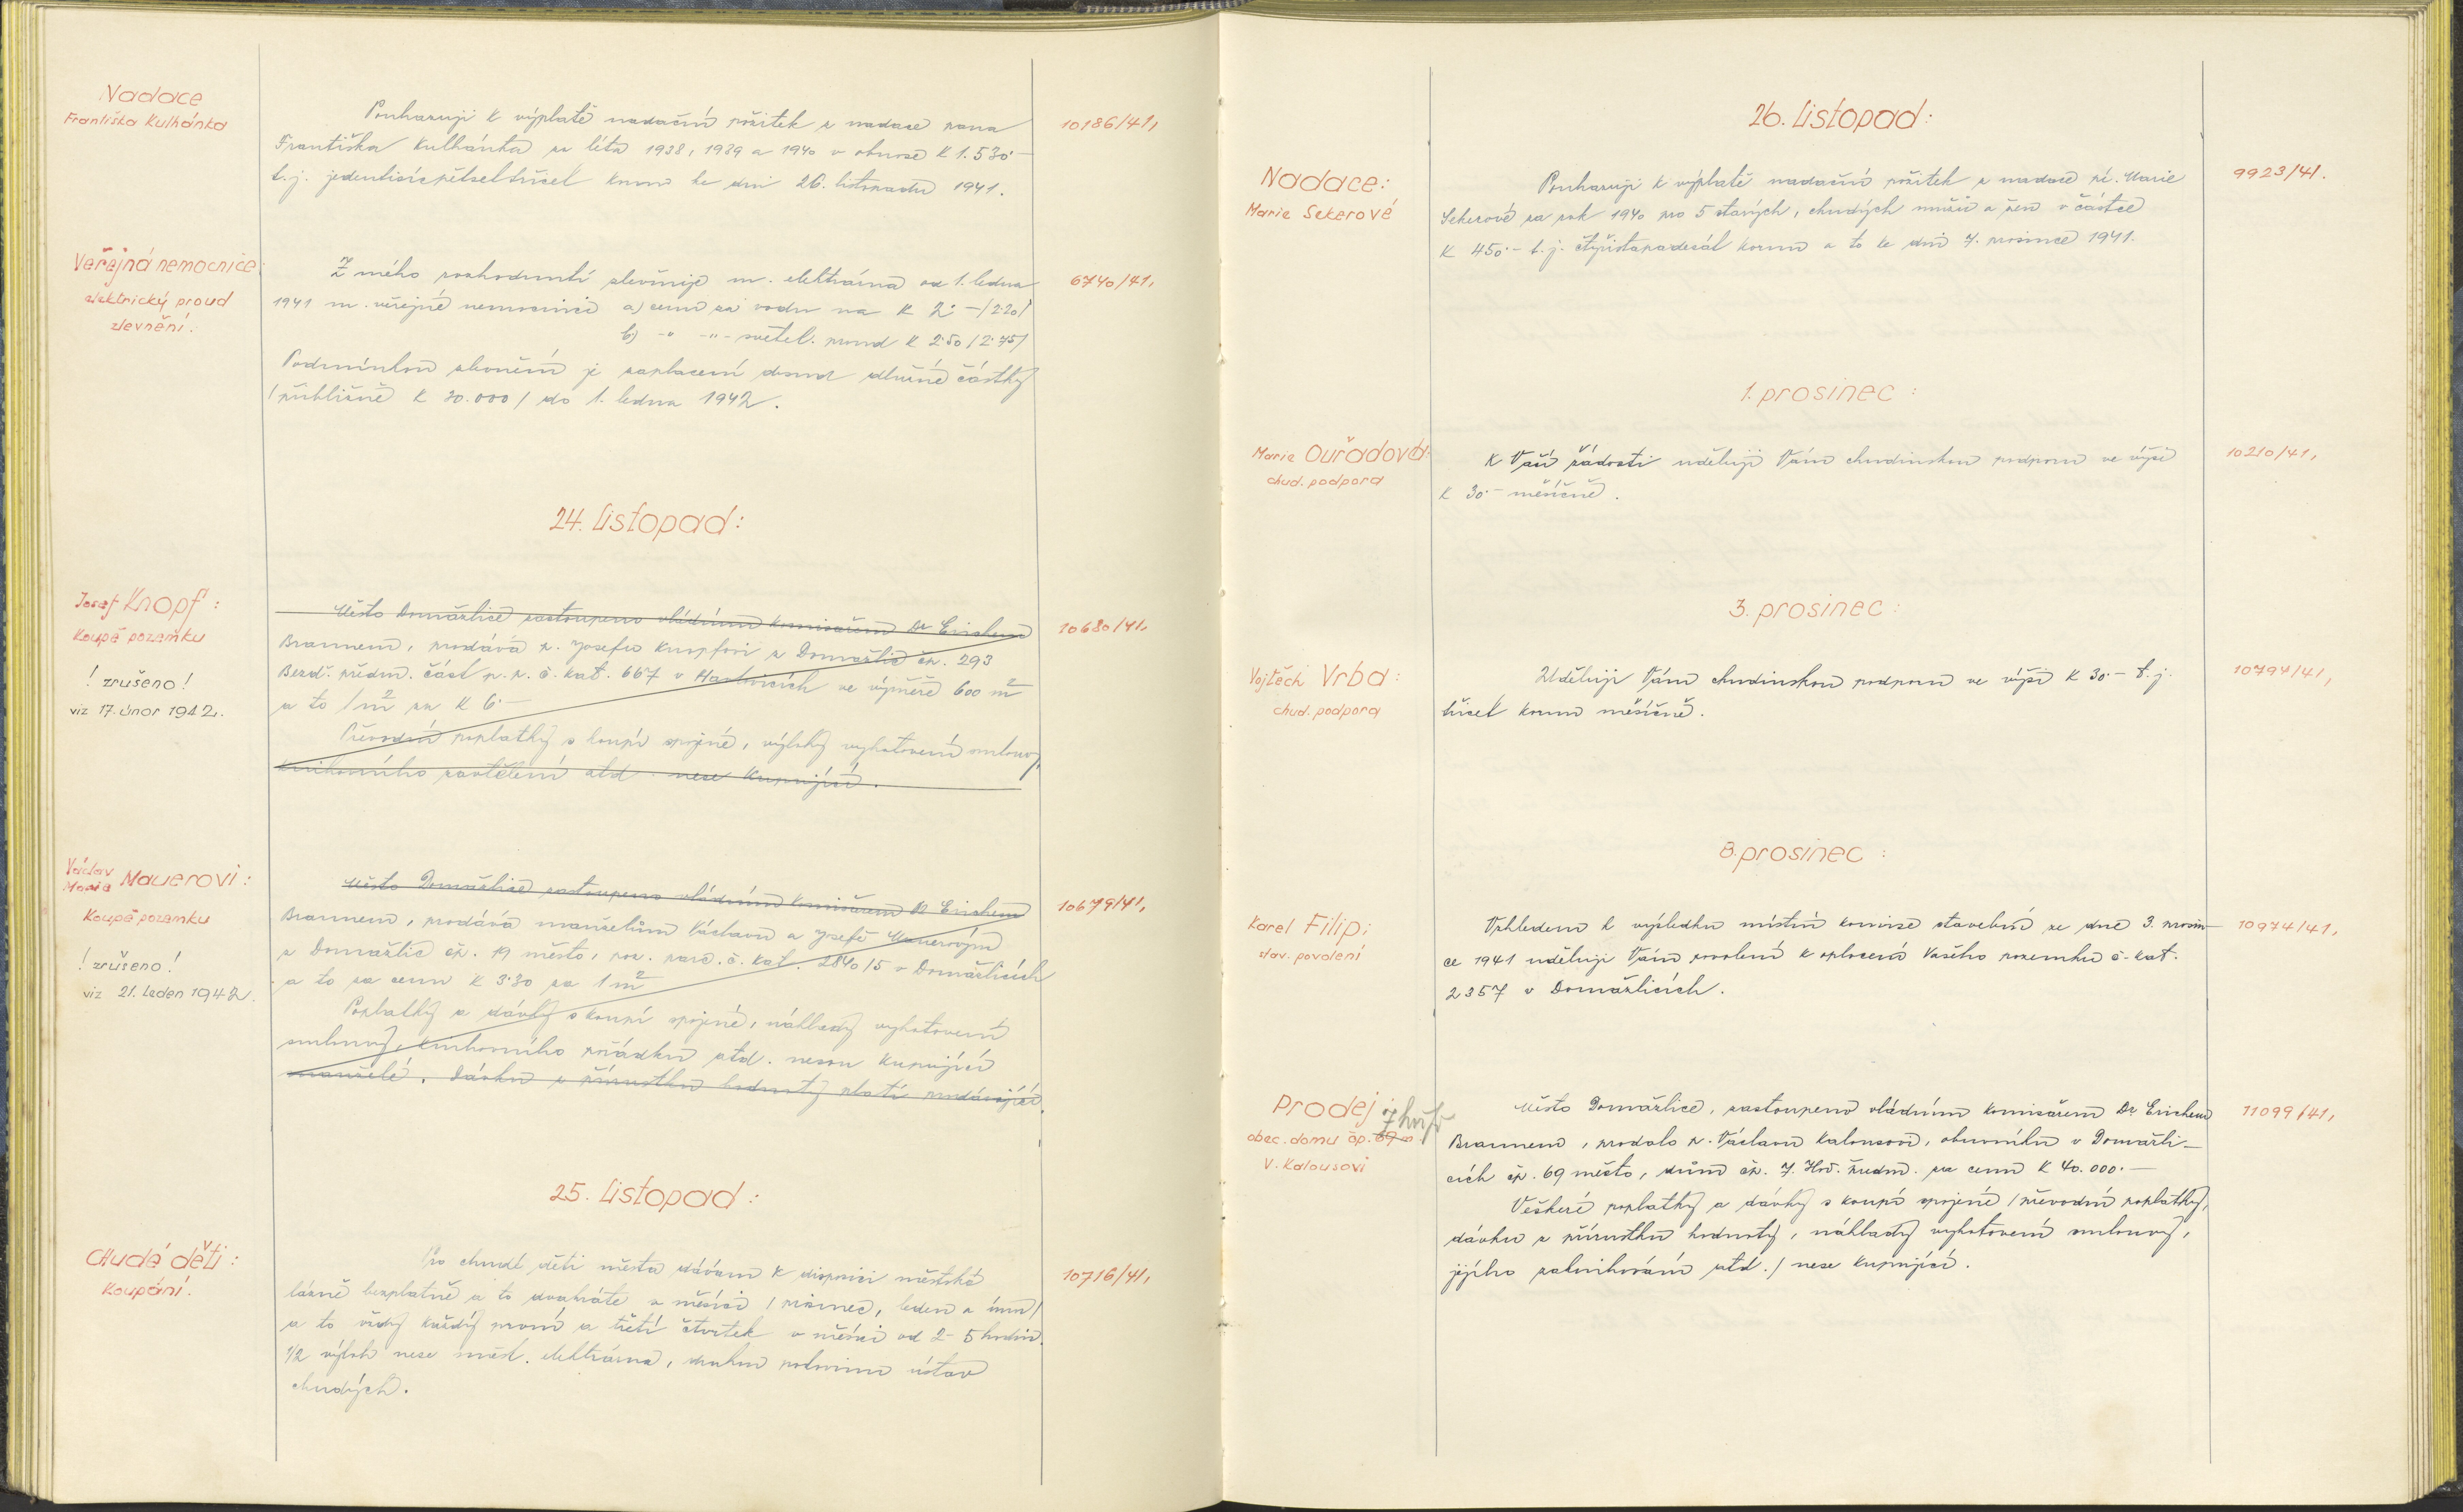 Nadace
Františka Kulhánka
Poukazuji k výplatě nadační požitek z nadace pana
Františka Kulhánka za léta 1938, 1939 a 1940 v obnose K 1.530·—
t.j. jedentisícpětsettřicet korun ke dni 26. listopadu 1941.
10186/41,
Veřejná nemocnice:
elektrický proud
zlevnění.
Z mého rozhodnutí zlevňuje m. elektrárna od 1. ledna
1941 m. veřejné nemocnici a) cenu za vodu na K 2·— /2·20/
b) -"- -"- světel. proud K 2·50 /2·75/
Podmínkou zlevnění je zaplacení dosud dlužné částky
/přibližně K 30.000/ do 1. ledna 1942.
6740/41,
24. listopad:
Josef Knopf:
Koupě pozemku
! zrušeno!
viz 17. únor 1942.
Město Domažlice zastoupeno vládním komisařem Dr Erichem
Braunem, prodává p. Josefu Knopfovi z Domažlic čp. 293
Bezd. předm. část p. p. č. kat. 667 v Havlovicích ve výměře 600 m²
a to 1 m² za K 6·—
Převodní poplatky s koupí spojené, výlohy vyhotovení smlouvy,
knihovního vtělení atd. nese kupující.
10680/41,
Václav
Marie Mauerovi:
Koupě pozemku
! zrušeno!
viz 21. leden 1942.
Město Domažlice zastoupeno vládním komisařem Dr Erichem
Braunem, prodává manželům Václavu a Josefě Mauerovým
z Domažlic čp. 19 město, poz. parc. č. kat. 2840/5 v Domažlicích
a to za cenu K 3·30 za 1 m²
Poplatky a dávky s koupí spojené, náklady vyhotovení
smlouvy, knihovního pořádku atd. nesou kupující
manželé. Dávku z přírustku hodnoty platí prodávající.
10679/41,
25. listopad:
Chudé děti:
Koupání.
Pro chudé děti města dávám k disposici městské
lázně bezplatně a to dvakráte v měsíci /prosinec, leden a únor/
a to vždy každý první a třetí čtvrtek v měsíci od 2-5 hodin.
1/2 výloh nese měst. elektrárna, druhou polovinu ústav
chudých.
10716/41,
26. listopad:
Nadace:
Marie Sekerové
Poukazuji k výplatě nadační požitek z nadace pí. Marie
Sekerové za rok 1940 pro 5 starých, chudých mužů a žen v částce
K 450·— t.j. čtyřistapadesát korun a to ke dni 7. prosince 1941.
9923/41.
1. prosinec:
Marie Ouřadová:
chud. podpora
K Vaší žádosti uděluji Vám chudinskou podporu ve výši
K 30·— měsíčně.
10210/41,
3. prosinec:
Vojtěch Vrba:
chud. podpora
Uděluji Vám chudinskou podporu ve výši K 30·— t.j.
třicet korun měsíčně.
10797/41,
8. prosinec:
Karel Filip:
stav. povolení
Vzhledem k výsledku místní komise stavební ze dne 3. prosin-
ce 1941 uděluji Vám povolení k oplocení Vašeho pozemku č. kat.
2357 v Domažlicích.
10974/41,
Prodej
obec. domu čp. 69
V. Kalousovi
Město Domažlice, zastoupeno vládním komisařem Dr. Erichem
Braunem, prodalo p. Václavu Kalousovi, obuvníku v Domažli-
cích čp. 69 město, dům čp. 7. Hoř. předm. za cenu K 40.000·—
Veškeré poplatky a dávky s koupí spojené /převodní poplatky,
dávku z přírustku hodnoty, náklady vyhotovení smlouvy,
jejího zaknihování atd./ nese kupující.
11099/41,